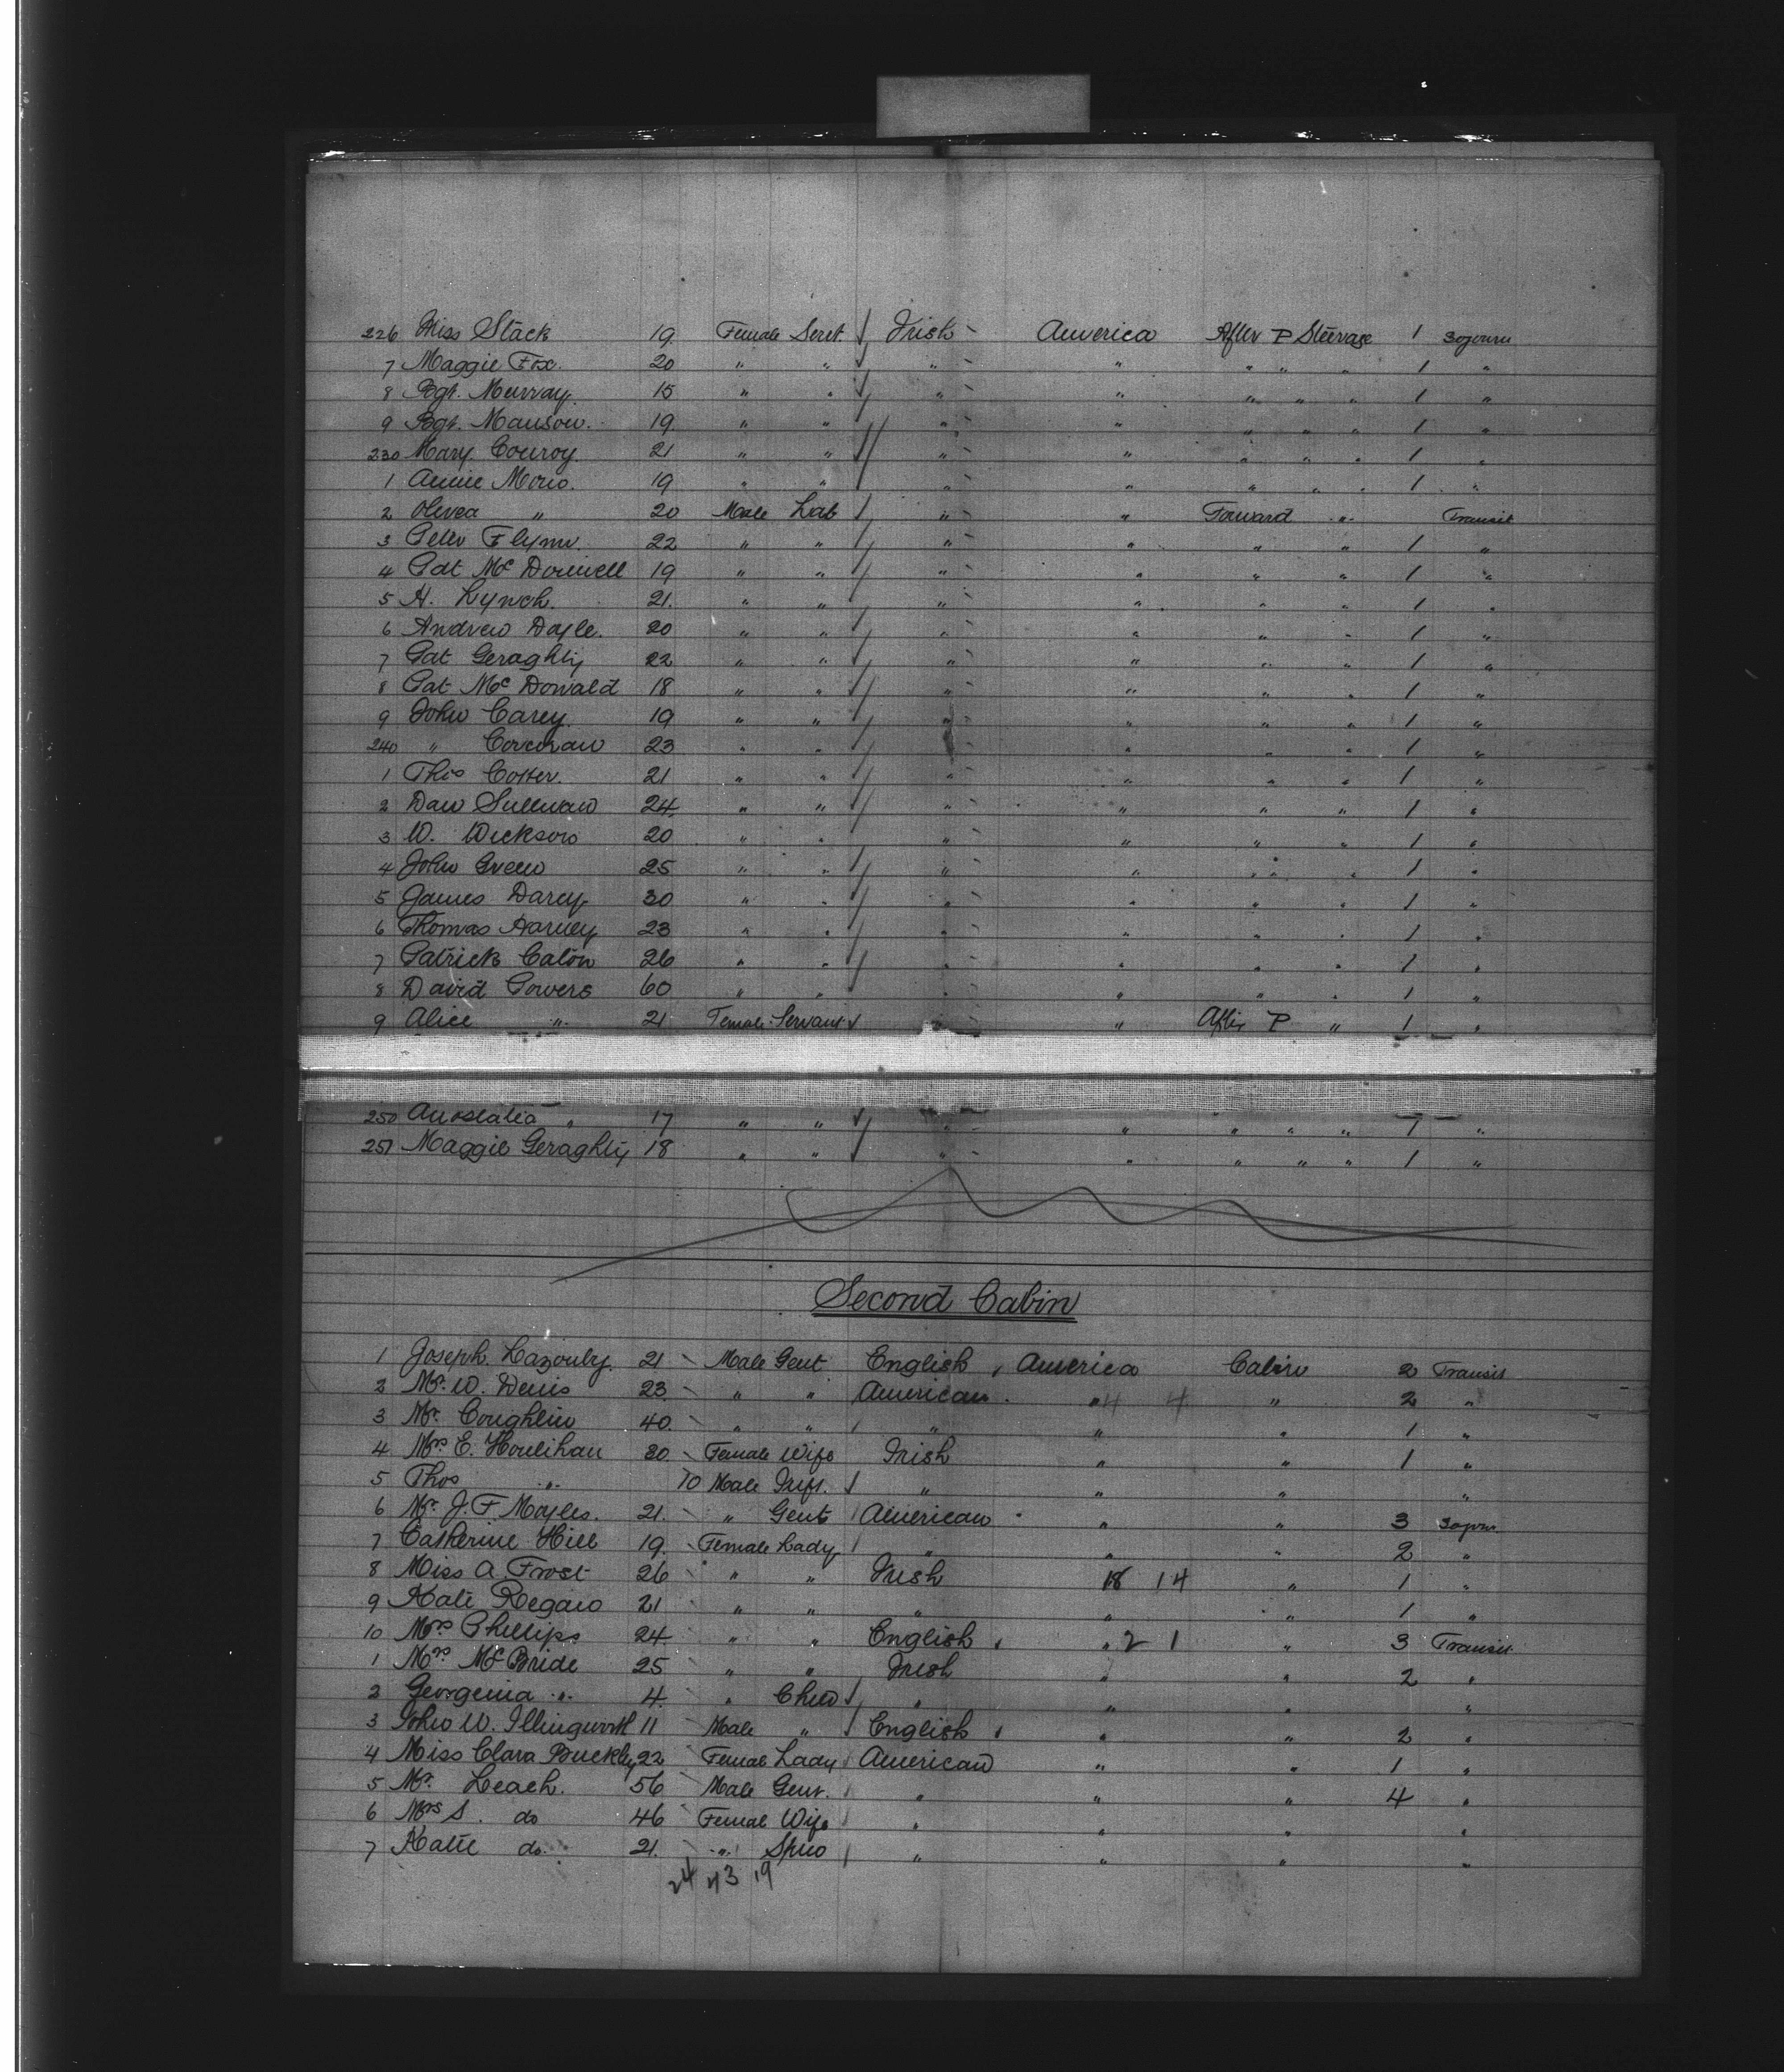 226 Miss Stack 19 Female Servt. Irish America After P Steerage 1 Sojourn
7 Maggie Fox. 20 " " " " " " " 1 "
8 Bgt. Murray. 15 " " " " " " " 1 "
9 Bgt. 19 " " " " " " " 1 "
230 Mary Conroy. 21 " " " " " " " 1 "
1 Annie 19 " " " " " " " 1 "
2 " 20 Male Lab " " Forward " Transit
3 Peter Flynn 22 " " " " " " 1 "
4 Pat Mc Donnell 19 " " " " " " 1 "
5 H. Lynch. 21. " " " " " " 1 "
6 Andrew Doyle. 20 " " " " " " 1 "
7 Pat Geraghty 22 " " " " " " 1 "
8 Pat Mc Donald 18 " " " " " " 1 "
9 John Carey. 19 " " " " " " 1 "
240 " Corcoran 23 " " " " " " 1 "
1 Thos Cotter. 21 " " " " " " 1 "
2 Dan Sullivan 24 " " " " " " 1 "
3 W. 20 " " " " " " 1 "
4 John Green 25 " " " " " " 1 "
5 James Darcy 30 " " " " " " 1 "
6 Thomas Harvey 23 " " " " " " 1 "
7 Patrick Caton 26 " " " " " " 1 "
8 David Powers 60 " " " " " " 1 "
9 Alice " 21 Female Servant " After P " 1 "
250 " 17 " " " " " " " 1 "
251 Maggie Geraghty 18 " " " " " " " 1 "
Second Cabin
1 Joseph Lazonby. 21 Male Gent English America Cabin 2 Transit
2 Mr. W. Denis 23 " " American " 4 4 " 2 "
3 Mr. Coughlin 40. " " " " " 1 "
4 Mrs E. Houlihan 30 Female Wife Irish " " 1 "
5 Thos " 10 Male Inft. " " " "
6 Mr. J. F Moyles. 21. " Gent American " " 3 Sojrn
7 Catherine Hill 19. Female Lady " " " 2 "
8 Miss A. Frost 26 " " Irish 18 14 " 1 "
9 Kate Regan 21 " " " " " 1 "
10 Mrs Phillips 24 " " English " 2 1 " 3 Transit
1 Mrs Mc Bride 25 " " Irish " " 2 "
2 Georgenia " 4 " Child " " " "
3 John W. Illingworth 11 Male " English " " 2 "
4 Miss Clara Buckley 22 Female Lady American " " 1 "
5 Mr. Leach. 56 Male Gent. " " " 4 "
6 Mrs S. do 46 Femal Wife " " " "
7 Katie do. 21. " " " " "
24 43 19